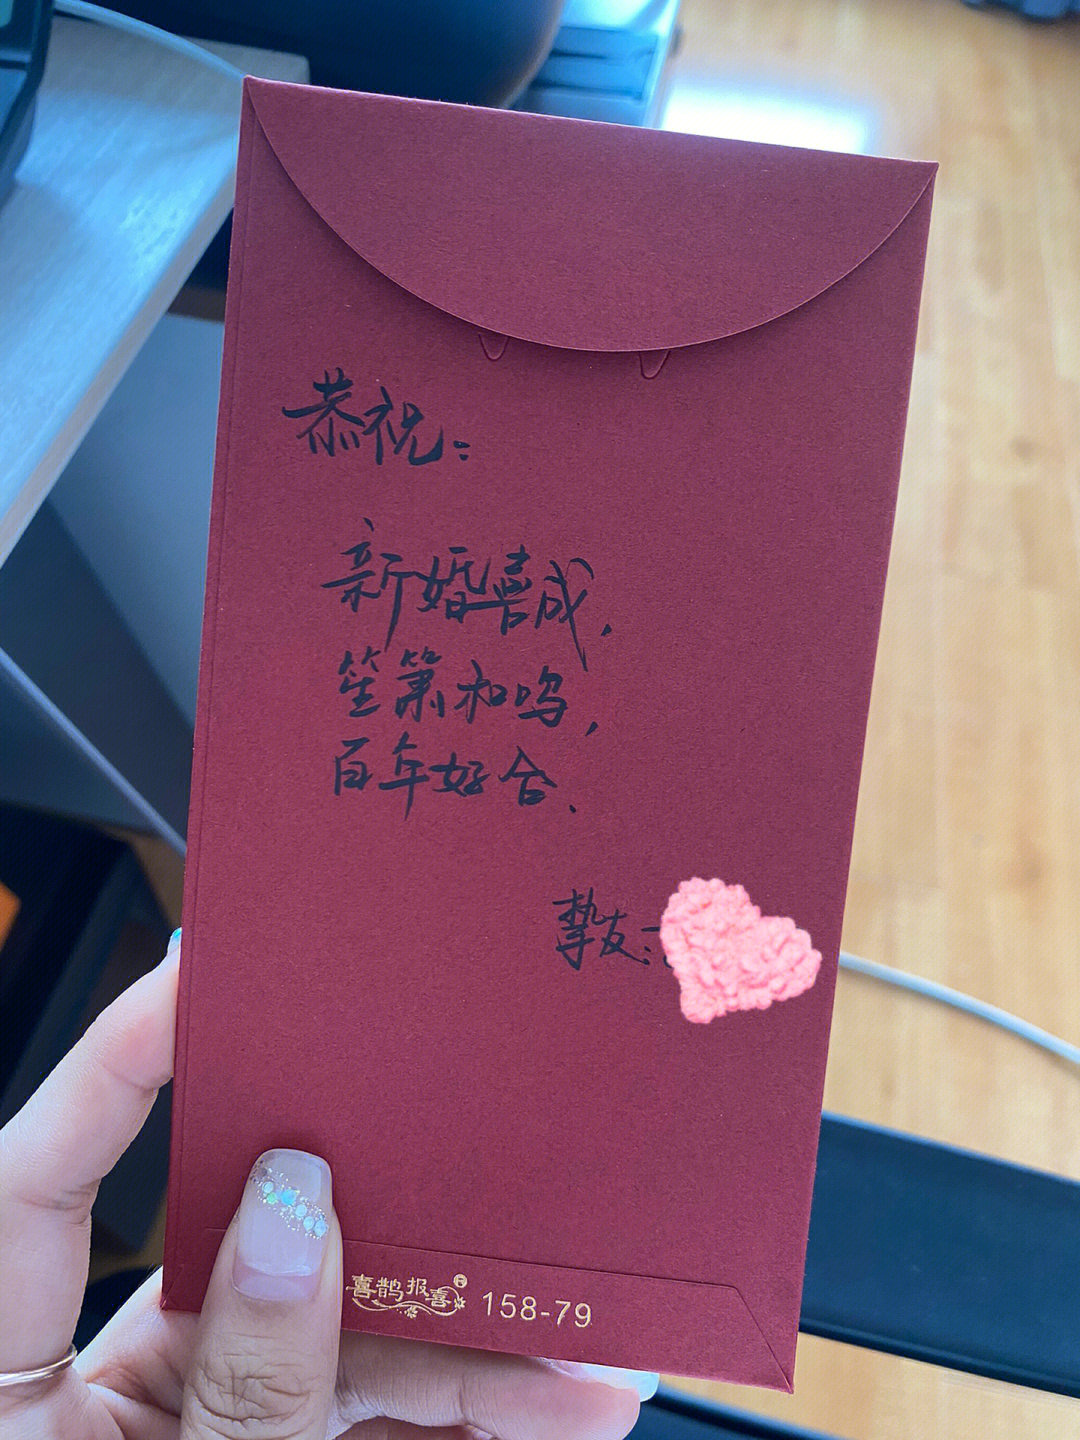 恭祝:
新婚喜成,
笙箫和鸣,
百年好合.
挚友:
喜鹊报喜®
158-79